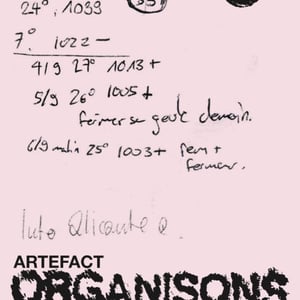 24°, 1039
7°. 1022 —
4/9 27° 1013 +
5/9 26° 1005 +
fermer sa demain.
6/9 matin 25° 1003 + fem +
fermer.
Info Alicante
ARTEFACT
ORGANISONS